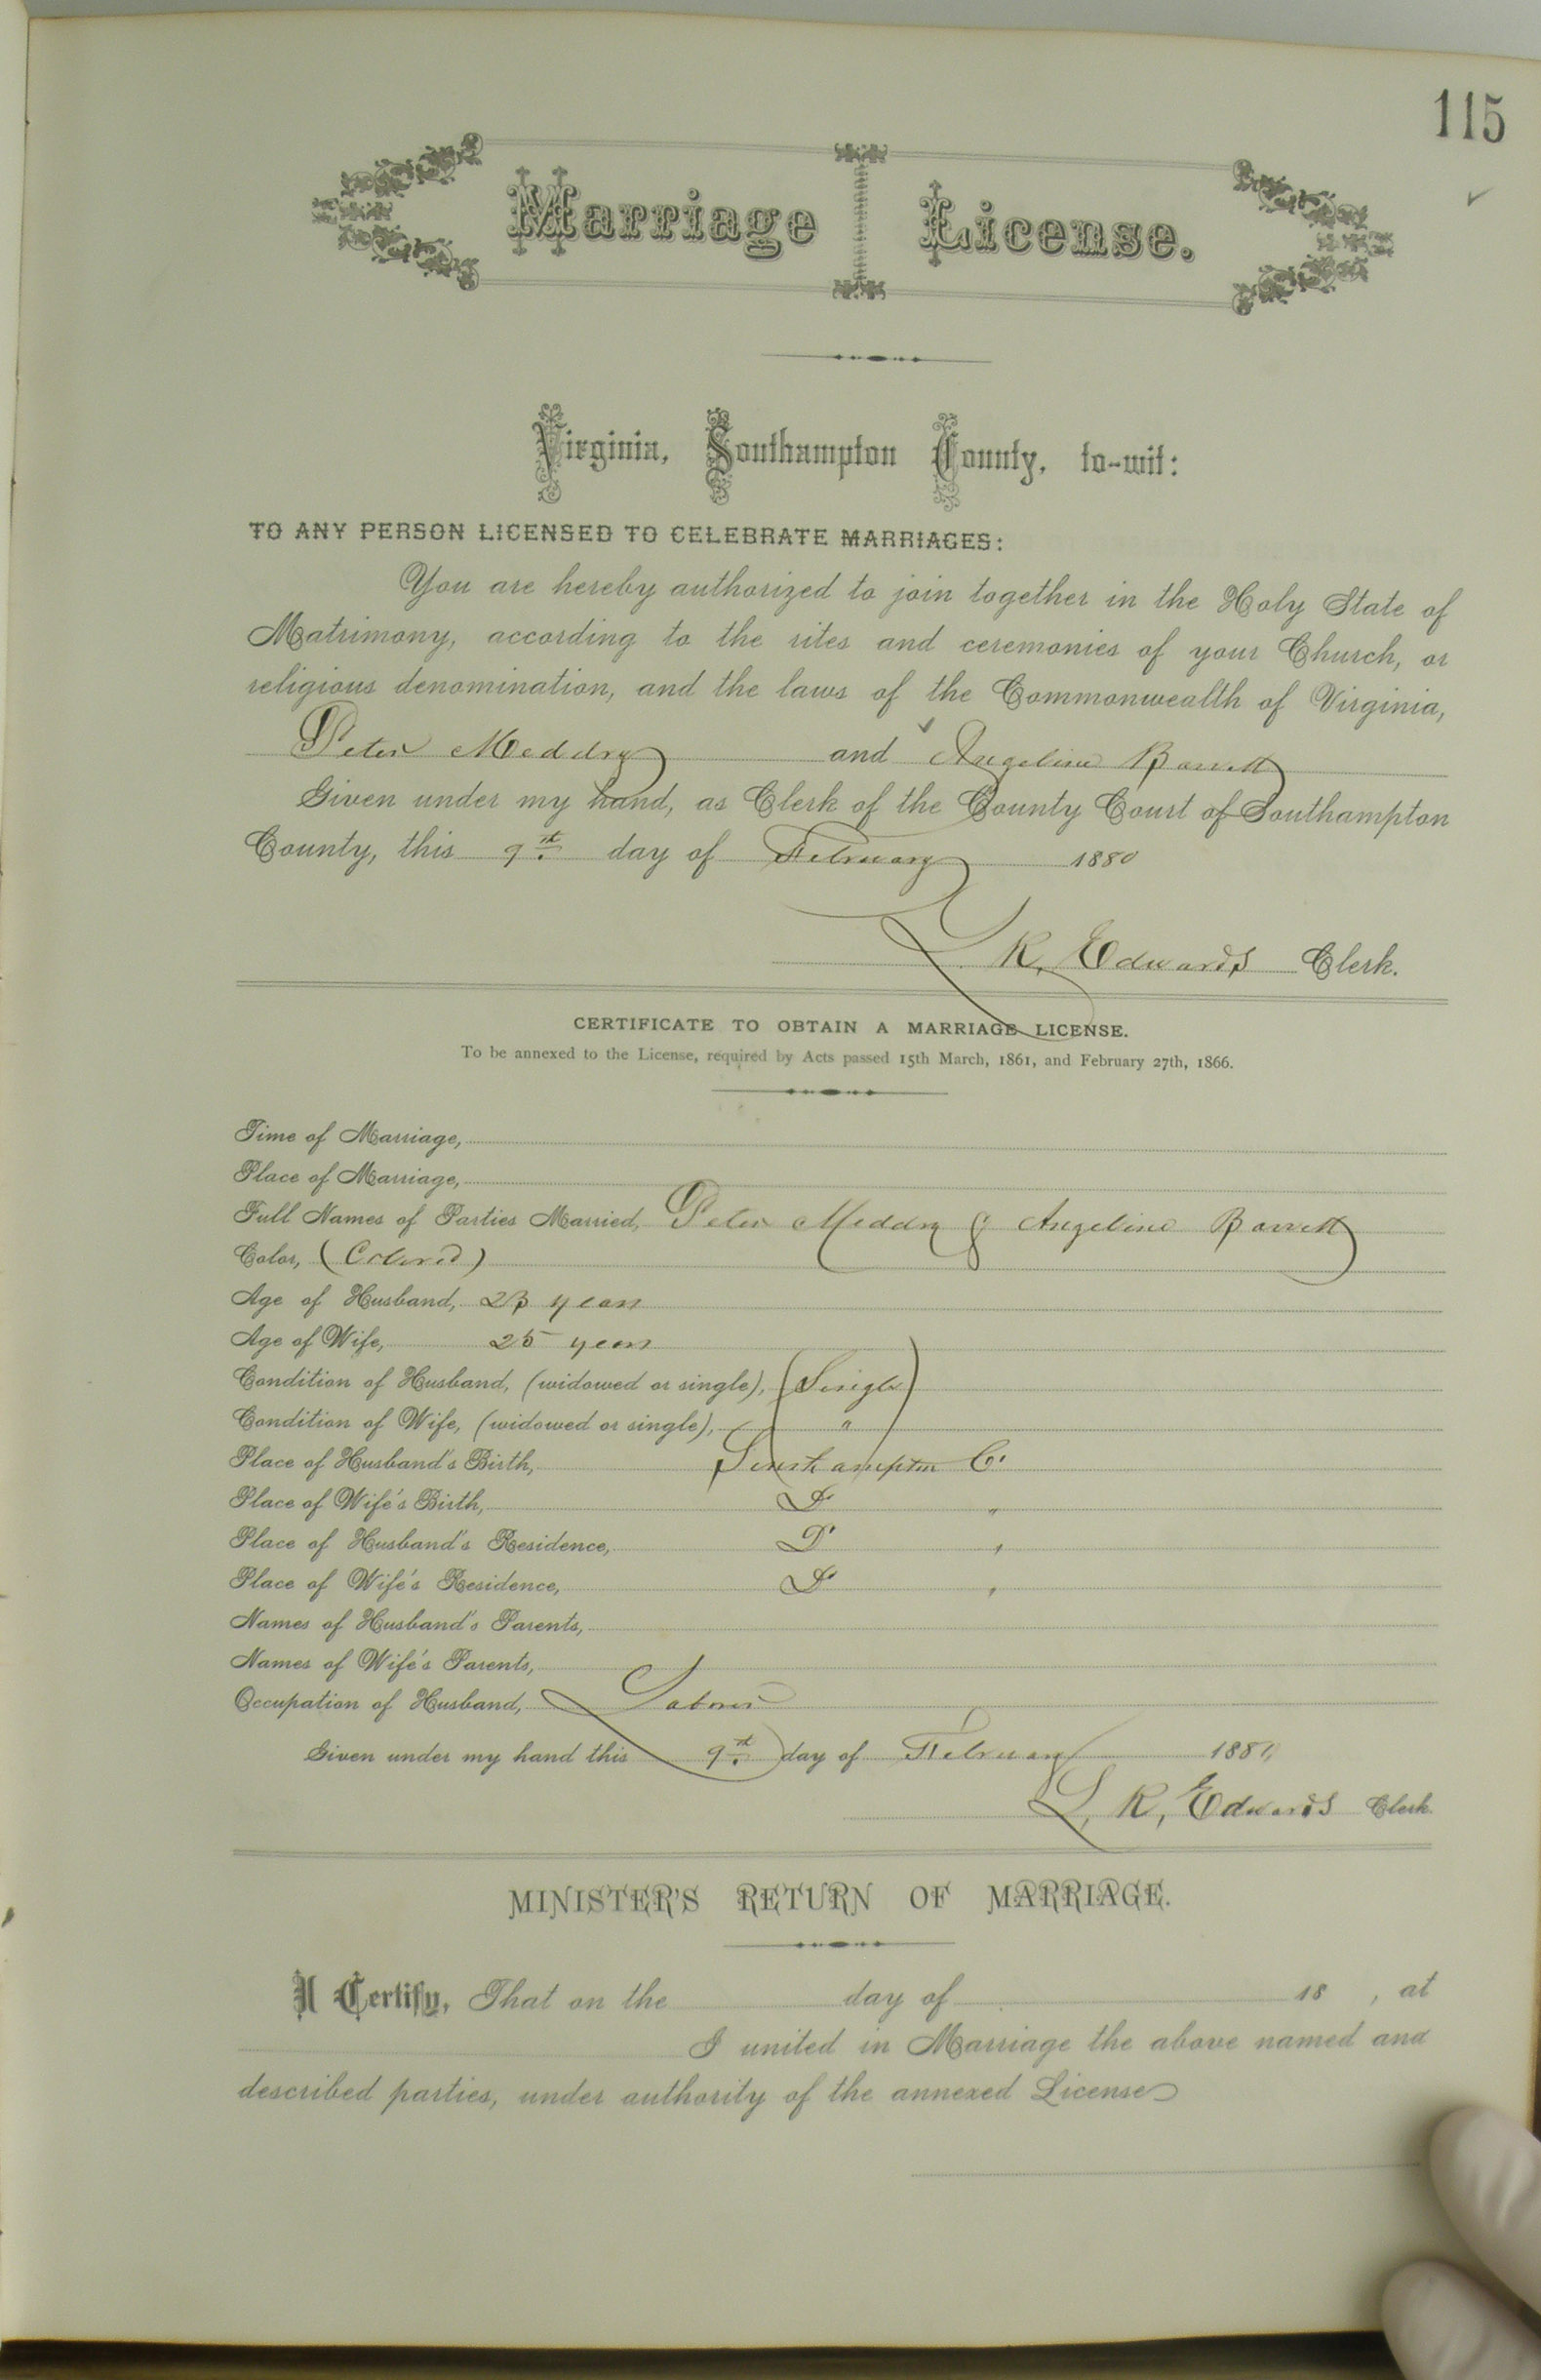 115
Marriage License.
Virginia, Southampton County, to-wit:
TO ANY PERSON LICENSED TO CELEBRATE MARRIAGES:
You are hereby authorized to join together in the Holy State of
Matrimony, according to the rites and ceremonies of your Church, or
religious denomination, and the laws of the Commonwealth of Virginia,
Peter Meddry and Angeline Barrett
Given under my hand, as Clerk of the County Court of Southampton
County, this 9th day of February 1880
L. R. Edwards Clerk.
CERTIFICATE TO OBTAIN A MARRIAGE LICENSE.
To be annexed to the License, required by Acts passed 15th March, 1861, and February 27th, 1866.
Time of Marriage,
Place of Marriage,
Full Names of Parties Married, Peter Meddry & Angeline Barrett
Color, (Colored)
Age of Husband, 23 years
Age of Wife, 25 years
Condition of Husband, (widowed or single), (Single)
Condition of Wife, (widowed or single), "
Place of Husband's Birth, Southampton Co.
Place of Wife's Birth, Do "
Place of Husband's Residence, Do "
Place of Wife's Residence, Do "
Names of Husband's Parents,
Names of Wife's Parents,
Occupation of Husband, Laborer
Given under my hand this 9th day of February 188
L. R. Edwards Clerk.
MINISTER'S RETURN OF MARRIAGE.
I Certify, That on the day of 18 , at
I united in Marriage the above named and
described parties, under authority of the annexed License